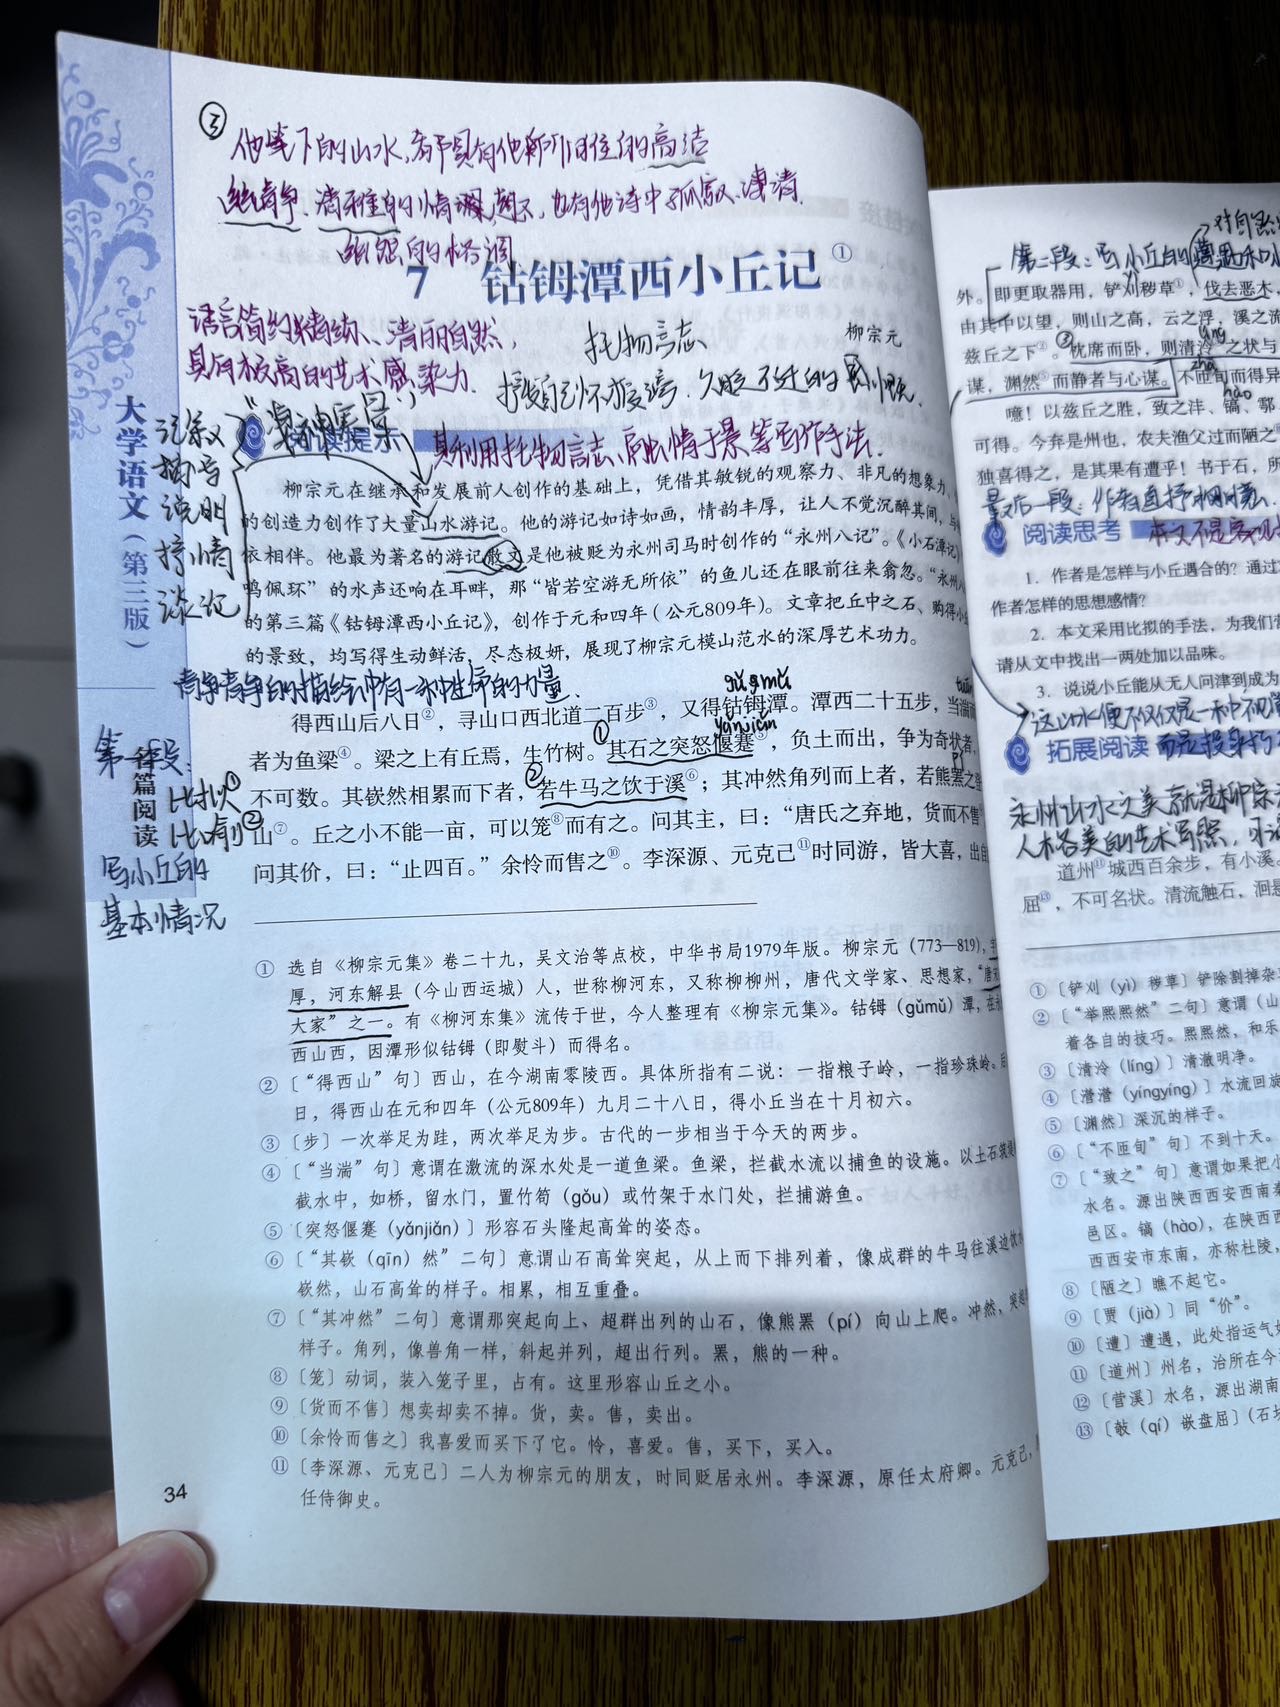 ③
他笔下的山水,都具有他所特有的高洁
幽静、清雅的情调趣,也有他诗中孤寂、凄清、
幽怨的格调
7 钴鉧潭西小丘记①
语言简约精练、清丽自然,
具有极高的艺术感染力.
托物言志
柳宗元
抒发自己怀才
久贬不迁的
具利用托物言志、寓情于景等写作手法.
阅读提示
大学语文(第三版)
记叙
描写
说明
抒情
议论
柳宗元在继承和发展前人创作的基础上,凭借其敏锐的观察力、非凡的想象力、
的创造力创作了大量山水游记。他的游记如诗如画,情韵丰厚,让人不觉沉醉其间,与
依相伴。他最为著名的游记散文是他被贬为永州司马时创作的“永州八记”。《小石潭记》
鸣佩环”的水声还响在耳畔,那“皆若空游无所依”的鱼儿还在眼前往来翕忽。“永州八
的第三篇《钴鉧潭西小丘记》,创作于元和四年(公元809年)。文章把丘中之石、购得小丘
的景致,均写得生动鲜活,尽态极妍,展现了柳宗元模山范水的深厚艺术功力。
静静的描绘中有一种生命的力量.
gǔ mǔ
得西山后八日②,寻山口西北道二百步③,又得钴鉧潭。潭西二十五步,当湍而
yǎn jiǎn
者为鱼梁④。梁之上有丘焉,生竹树。①其石之突怒偃蹇⑤,负土而出,争为奇状者,
不可数。其嵚然相累而下者,②若牛马之饮于溪⑥;其冲然角列而上者,若熊罴之登
山⑦。丘之小不能一亩,可以笼⑧而有之。问其主,曰:“唐氏之弃地,货而不售
问其价,曰:“止四百。”余怜而售之⑩。李深源、元克己⑪时同游,皆大喜,出自
第一段:
比拟①
比喻②
写小丘的
基本情况
精篇阅读
① 选自《柳宗元集》卷二十九,吴文治等点校,中华书局1979年版。柳宗元(773—819),字
厚,河东解县(今山西运城)人,世称柳河东,又称柳柳州,唐代文学家、思想家,“唐宋
大家”之一。有《柳河东集》流传于世,今人整理有《柳宗元集》。钴鉧(gǔmǔ)潭,在永
西山西,因潭形似钴鉧(即熨斗)而得名。
② 〔“得西山”句〕西山,在今湖南零陵西。具体所指有二说:一指粮子岭,一指珍珠岭。后
日,得西山在元和四年(公元809年)九月二十八日,得小丘当在十月初六。
③ 〔步〕一次举足为跬,两次举足为步。古代的一步相当于今天的两步。
④ 〔“当湍”句〕意谓在激流的深水处是一道鱼梁。鱼梁,拦截水流以捕鱼的设施。以土石筑
截水中,如桥,留水门,置竹笱(gǒu)或竹架于水门处,拦捕游鱼。
⑤ 〔突怒偃蹇(yǎnjiǎn)〕形容石头隆起高耸的姿态。
⑥ 〔“其嵚(qīn)然”二句〕意谓山石高耸突起,从上而下排列着,像成群的牛马往溪边饮
嵚然,山石高耸的样子。相累,相互重叠。
⑦ 〔“其冲然”二句〕意谓那突起向上、超群出列的山石,像熊罴(pí)向山上爬。冲然,突起
样子。角列,像兽角一样,斜起并列,超出行列。罴,熊的一种。
⑧ 〔笼〕动词,装入笼子里,占有。这里形容山丘之小。
⑨ 〔货而不售〕想卖却卖不掉。货,卖。售,卖出。
⑩ 〔余怜而售之〕我喜爱而买下了它。怜,喜爱。售,买下,买入。
⑪ 〔李深源、元克己〕二人为柳宗元的朋友,时同贬居永州。李深源,原任太府卿。元克己,
任侍御史。
34
对自然
第二段:写小丘的
外。即更取器用,铲刈秽草①,伐去恶木,
由其中以望,则山之高,云之浮,溪之流
líng
兹丘之下②。枕席而卧,则清泠之状与
谋,渊然⑤而静者与心谋。不匝旬而得异
hào
噫!以兹丘之胜,致之沣、镐、鄠
可得。今弃是州也,农夫渔父过而陋之
独喜得之,是其果有遭乎!书于石,所
最后一段:作者直抒胸臆.
阅读思考
1. 作者是怎样与小丘遇合的?通过
作者怎样的思想感情?
2. 本文采用比拟的手法,为我们
请从文中找出一两处加以品味。
3. 说说小丘能从无人问津到成为
这山水便不仅仅是一种
拓展阅读
永州山水之美就是柳宗元
人格美的艺术写照,可
道州⑪城西百余步,有小溪。
屈⑬,不可名状。清流触石,洄悬
① 〔铲刈(yì)秽草〕铲除割掉杂
② 〔“举熙熙然”二句〕意谓(山
着各自的技巧。熙熙然,和乐
③ 〔清泠(líng)〕清澈明净。
④ 〔瀯瀯(yíngyíng)〕水流回旋
⑤ 〔渊然〕深沉的样子。
⑥ 〔“不匝旬”句〕不到十天。
⑦ 〔“致之”句〕意谓如果把小
水名。源出陕西西安西南秦
邑区。镐(hào),在陕西西
西西安市东南,亦称杜陵,
⑧ 〔陋之〕瞧不起它。
⑨ 〔贾(jià)〕同“价”。
⑩ 〔遭〕遭遇,此处指运气好
⑪ 〔道州〕州名,治所在今
⑫ 〔营溪〕水名,源出湖南
⑬ 〔攲(qí)嵌盘屈〕(石块